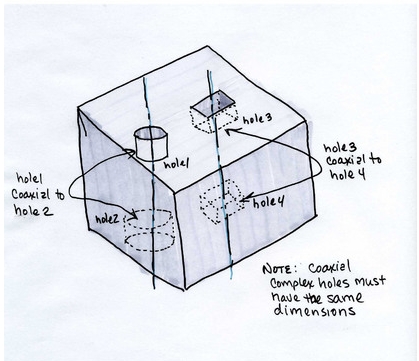 hole3
hole1
hole1
coaxial to
hole 2
hole2
hole 3
coaxial to
hole 4
hole4
NOTE: Coaxial
Complex holes must
have the same
dimensions